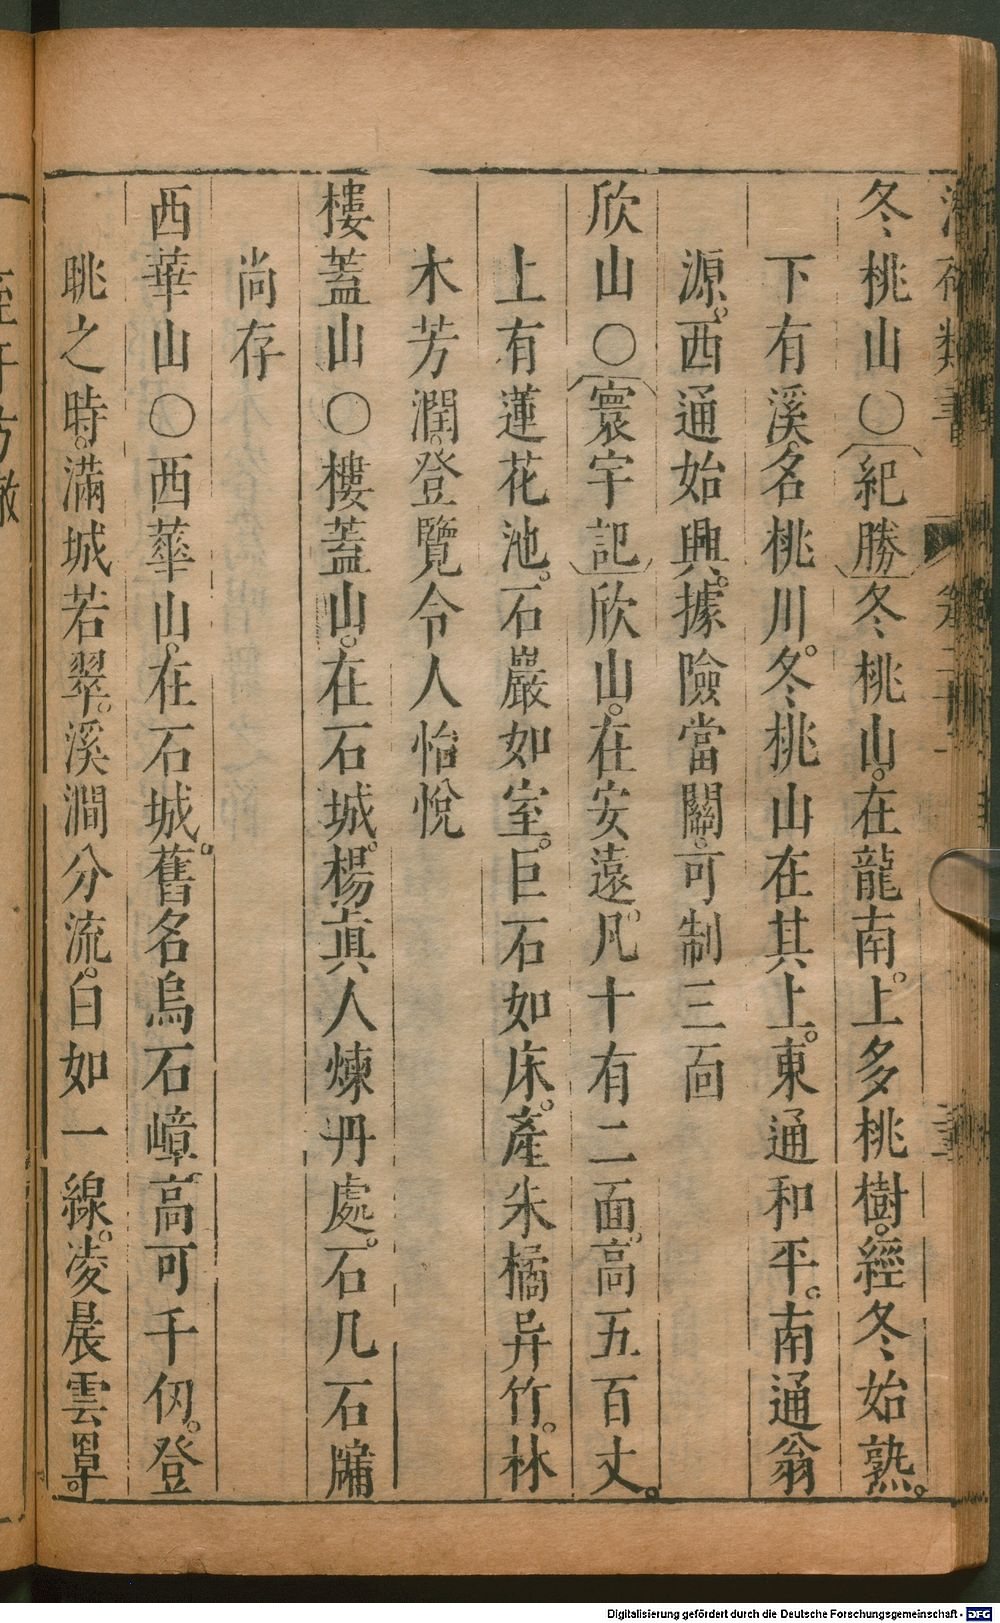 冬桃山○〔紀勝〕冬桃山。在龍南。上多桃樹。經冬始熟。
下有溪。名桃川。冬桃山在其上。東通和平。南通翁
源。西通始興。據險當關。可制三面
欣山○〔寰宇記〕欣山。在安遠。凡十有二面。高五百丈。
上有蓮花池。石巖如室。巨石如床。產朱橘异竹。林
木芳潤。登覽令人怡悅
樓蓋山○樓蓋山。在石城。楊眞人煉丹處。石几石牗
尚存
西華山○西華山。在石城。舊名烏石嶂。高可千仞。登
眺之時。滿城若翠。溪澗分流。白如一線。凌晨雲罩。
Digitalisierung gefördert durch die Deutsche Forschungsgemeinschaft - DFG